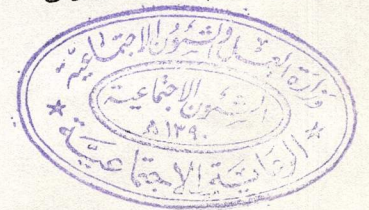 وزارة العمل والشئون الاجتماعية
الشئون الاجتماعية
١٣٩٠هـ
الاجتماعية